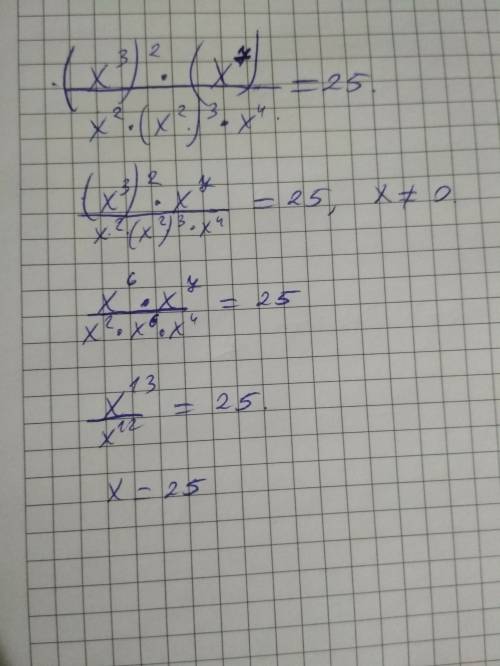 (x³)² · (x⁷) / x² · (x²)³ · x⁴ = 25.
(x³)² · x⁷ / x² · (x²)³ · x⁴ = 25, x ≠ 0
x⁶ · x⁷ / x² · x⁶ · x⁴ = 25
x¹³ / x¹² = 25.
x = 25